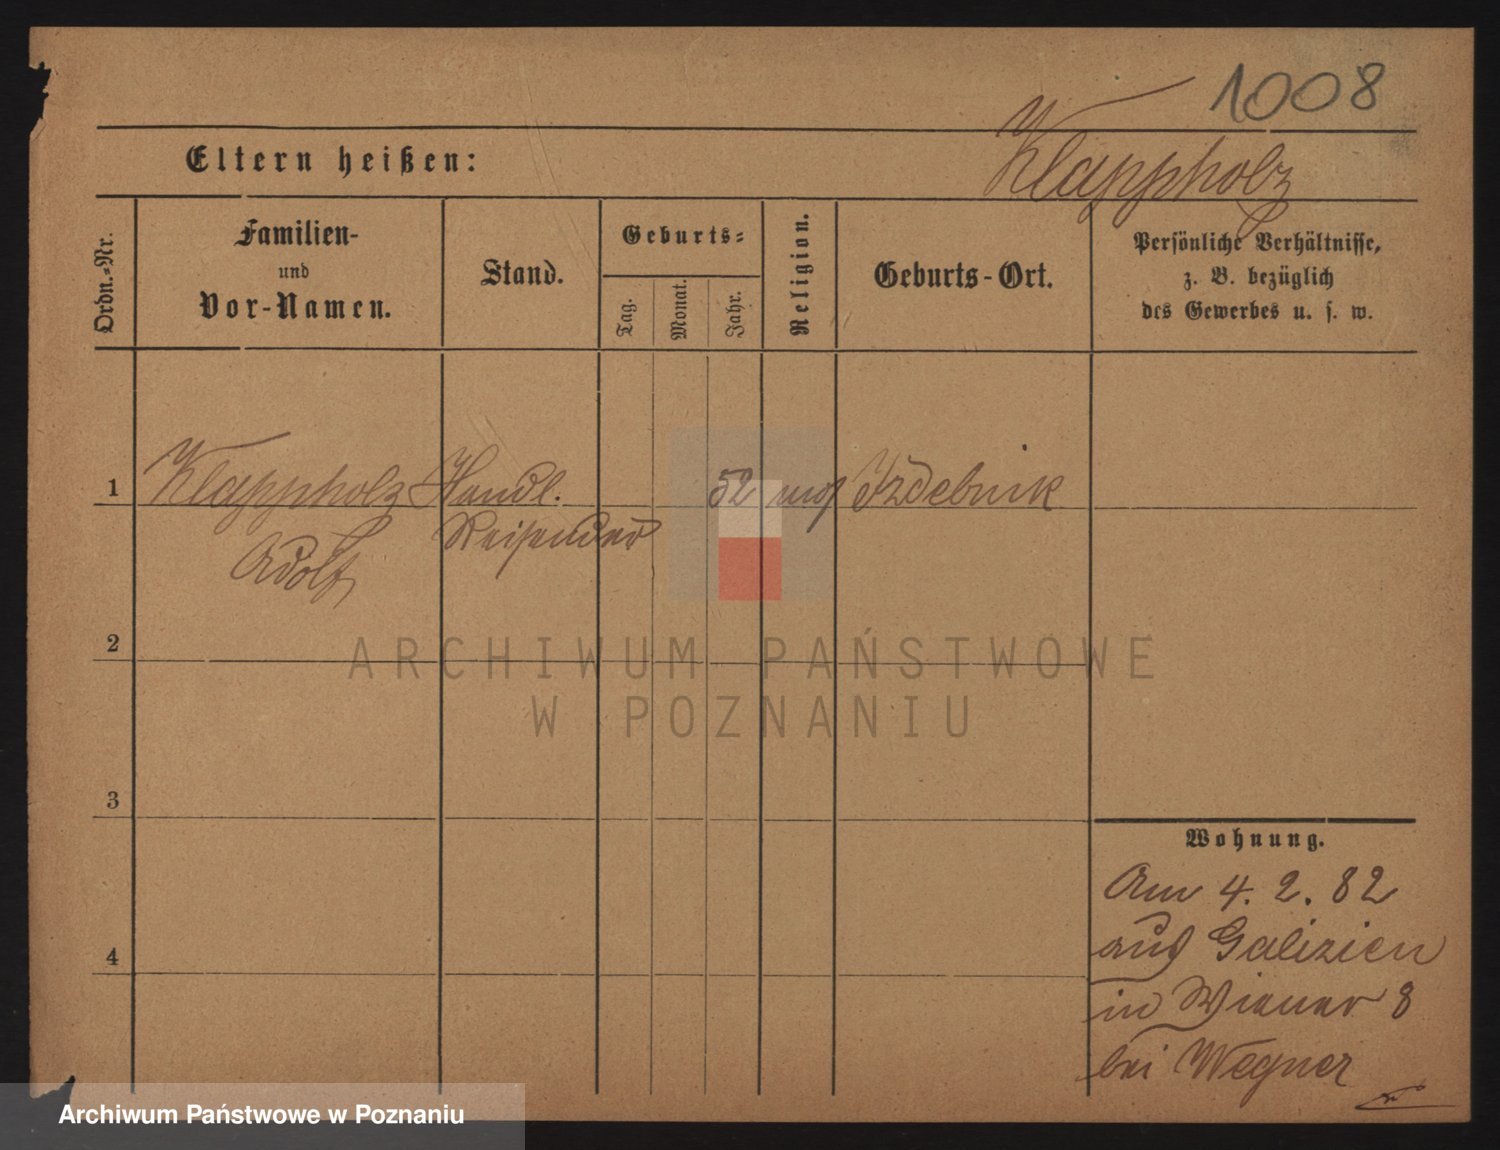 1008
Eltern heißen:
Klappholz
Ordn.=Nr.
Familien-
und
Vor-Namen.
Stand.
Geburts=
Tag.
Monat.
Jahr.
Religion.
Geburts-Ort.
Persönliche Verhältnisse,
z. B. bezüglich
des Gewerbes u. s. w.
1
Klappholz
Adolf
Handl.
Reisender
52
mos
Izdebnik
2
3
4
Wohnung.
Am 4. 2. 82
aus Galizien
in Wiener 8
bei Wegner
ARCHIWUM PAŃSTWOWE
W POZNANIU
Archiwum Państwowe w Poznaniu